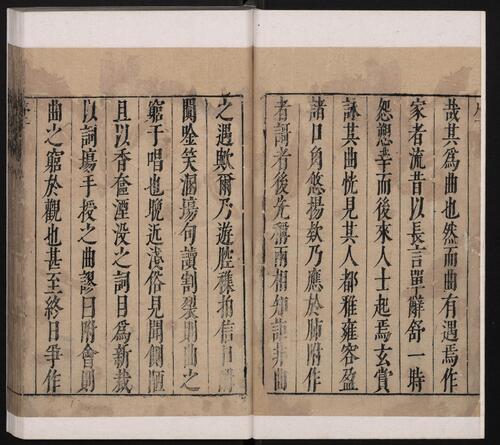 哉其爲曲也然而曲有遇焉作
家者流昔以長言單辭舒一時
怨愬幸而後來人士起焉玄賞
詠其曲恍見其人都雅雍容盈
諸口角悠揚欸乃應於肺附作
者謌者後先稱兩相知詎非曲
之遇歟爾乃遊腔穢拍信口
唫笑溷場句讀割裂則曲之
窮于唱也晚近淺俗見聞側陋
且以香奩湮没之詞目爲新裁
以詞場手授之曲謬曰附會則
曲之窮於觀也甚至終日爭作